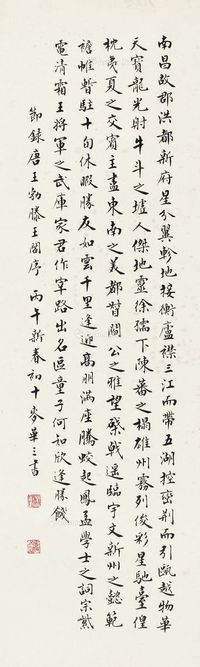 南昌故郡洪都新府星分翼軫地接衡廬襟三江而帶五湖控蠻荊而引甌越物華
天寶龍光射牛斗之墟人傑地靈徐孺下陳蕃之榻雄州霧列俊彩星馳臺隍
枕夷夏之交賓主盡東南之美都督閻公之雅望棨戟遙臨宇文新州之懿範
襜帷暫駐十旬休暇勝友如雲千里逢迎高朋滿座騰蛟起鳳孟學士之詞宗紫
電清霜王將軍之武庫家君作宰路出名區童子何知欣逢勝餞
節錄唐王勃滕王閣序 丙午新春初十 麥華三書